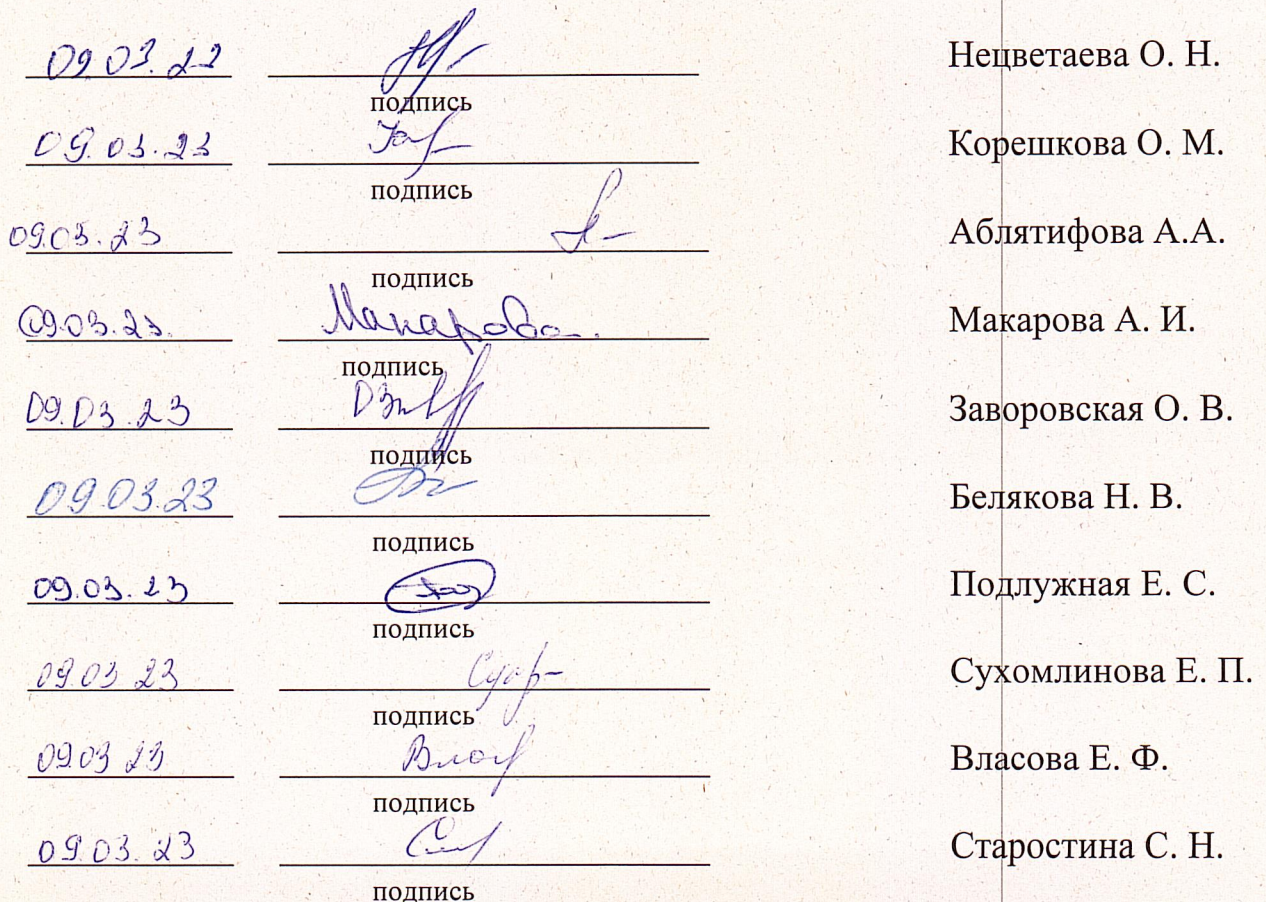 09.03.23 Нецветаева О. Н.
подпись
09.03.23 Корешкова О. М.
подпись
09.03.23 Аблятифова А.А.
подпись
09.03.23. Макарова. Макарова А. И.
подпись
09.03.23 Заворовская О. В.
подпись
09.03.23 Белякова Н. В.
подпись
09.03.23 Подлужная Е. С.
подпись
09.03 23 Сухомлинова Е. П.
подпись
09.03 23 Власова Е. Ф.
подпись
09.03.23 Старостина С. Н.
подпись